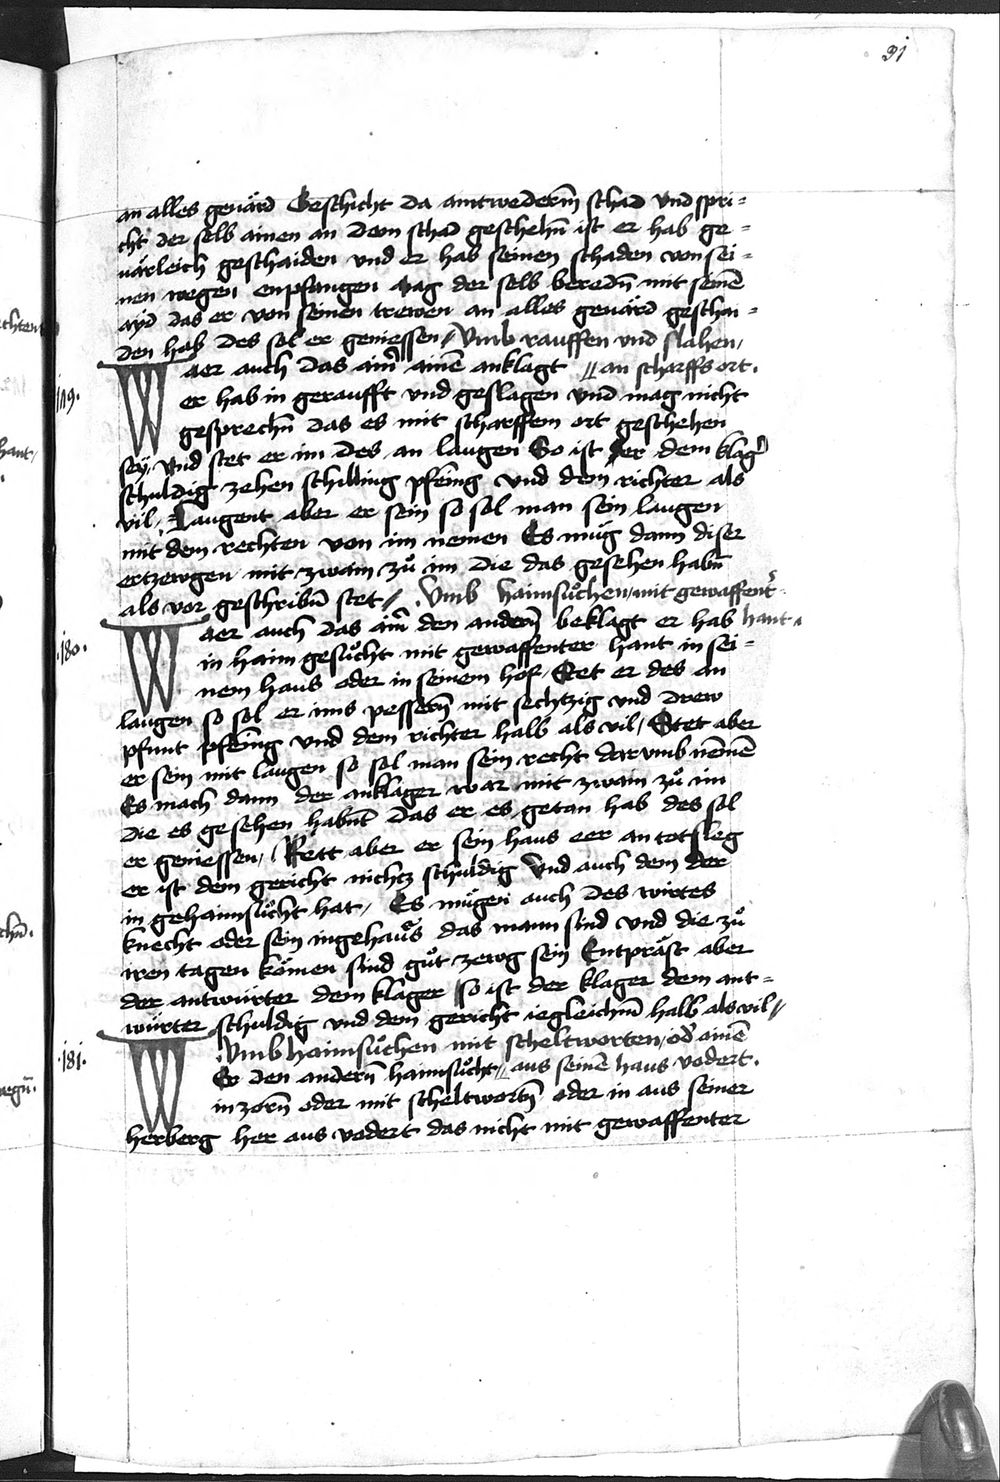 91
an alles geuärd Geschicht da amtwederm̄ schad vnd spri=
cht der selb ainen an dem schad geschehn̄ ist er hab ge=
uärleich geschaiden vnd er hab seinen schaden von sei=
nen wegen enpfangen Mag der selb beredn̄ mit seinē
ayd das er von seinen trewen an alles geuärd geschai=
den hab des sol er geniessen // Vmb rauffen vnd slahen /
Waer auch das aim̄ ainē anklagt // an scharffs ort.
179.
er hab in geraufft vnd geslagen vnd mag nicht
gesprechn̄ das es mit scharffem ort geschehen
sey / Vnd stet er im des an laugen So ist er dem klag̉
schuldig zehen schilling pfēing vnd dem richter als
vil / Laugent aber er sein so sol man sein laugen
mit dem rechten von im nemen Es müg dann diser
ertzewgen mit zwain zů im die das gesehen habn̄t
als vor geschribn̄ stet // Vmb haimsůchen / mit gewaffent̉
Waer auch das aim̄ den andern̄ beklagt er hab hant.
.180.
in haim gesůcht mit gewaffenter hant in sei=
nem haus oder in seinem hof / Stet er des an
laugen so sol er ims pessern̄ mit sechtzig vnd drew
pfunt pfēing vnd dem richter halb als vil / Stet aber
er sein mit laugen so sol man sein recht darvmb nēmē
Es mach dann der anklager war mit zwain zů im
die es gesehen habn̄t das er es getan hab des sol
er geniessen / Rett aber er sein haus eer an totsleg
er ist dem gericht nichcz schuldig Vnd auch dem der
in gehaimsůcht hat / Es mügen auch des wirtes
knecht oder sein ingehaẅs das mann sind vnd die zů
iren tagen kömen sind gůt zewg sein Entpräst aber
der antwürter dem klager so ist der klager dem ant=
würter schuldig vnd dem gericht iegleichm̄ halb als vil //
Vmb haimsůchen mit scheltworten / od̉ ainē
.181.
Wer den andern̄ haimsůcht // aus seinē haus vodert.
in zorn̄ oder mit scheltwortn̄ oder in aus seiner
herberg her aus vodert das nicht mit gewaffenter